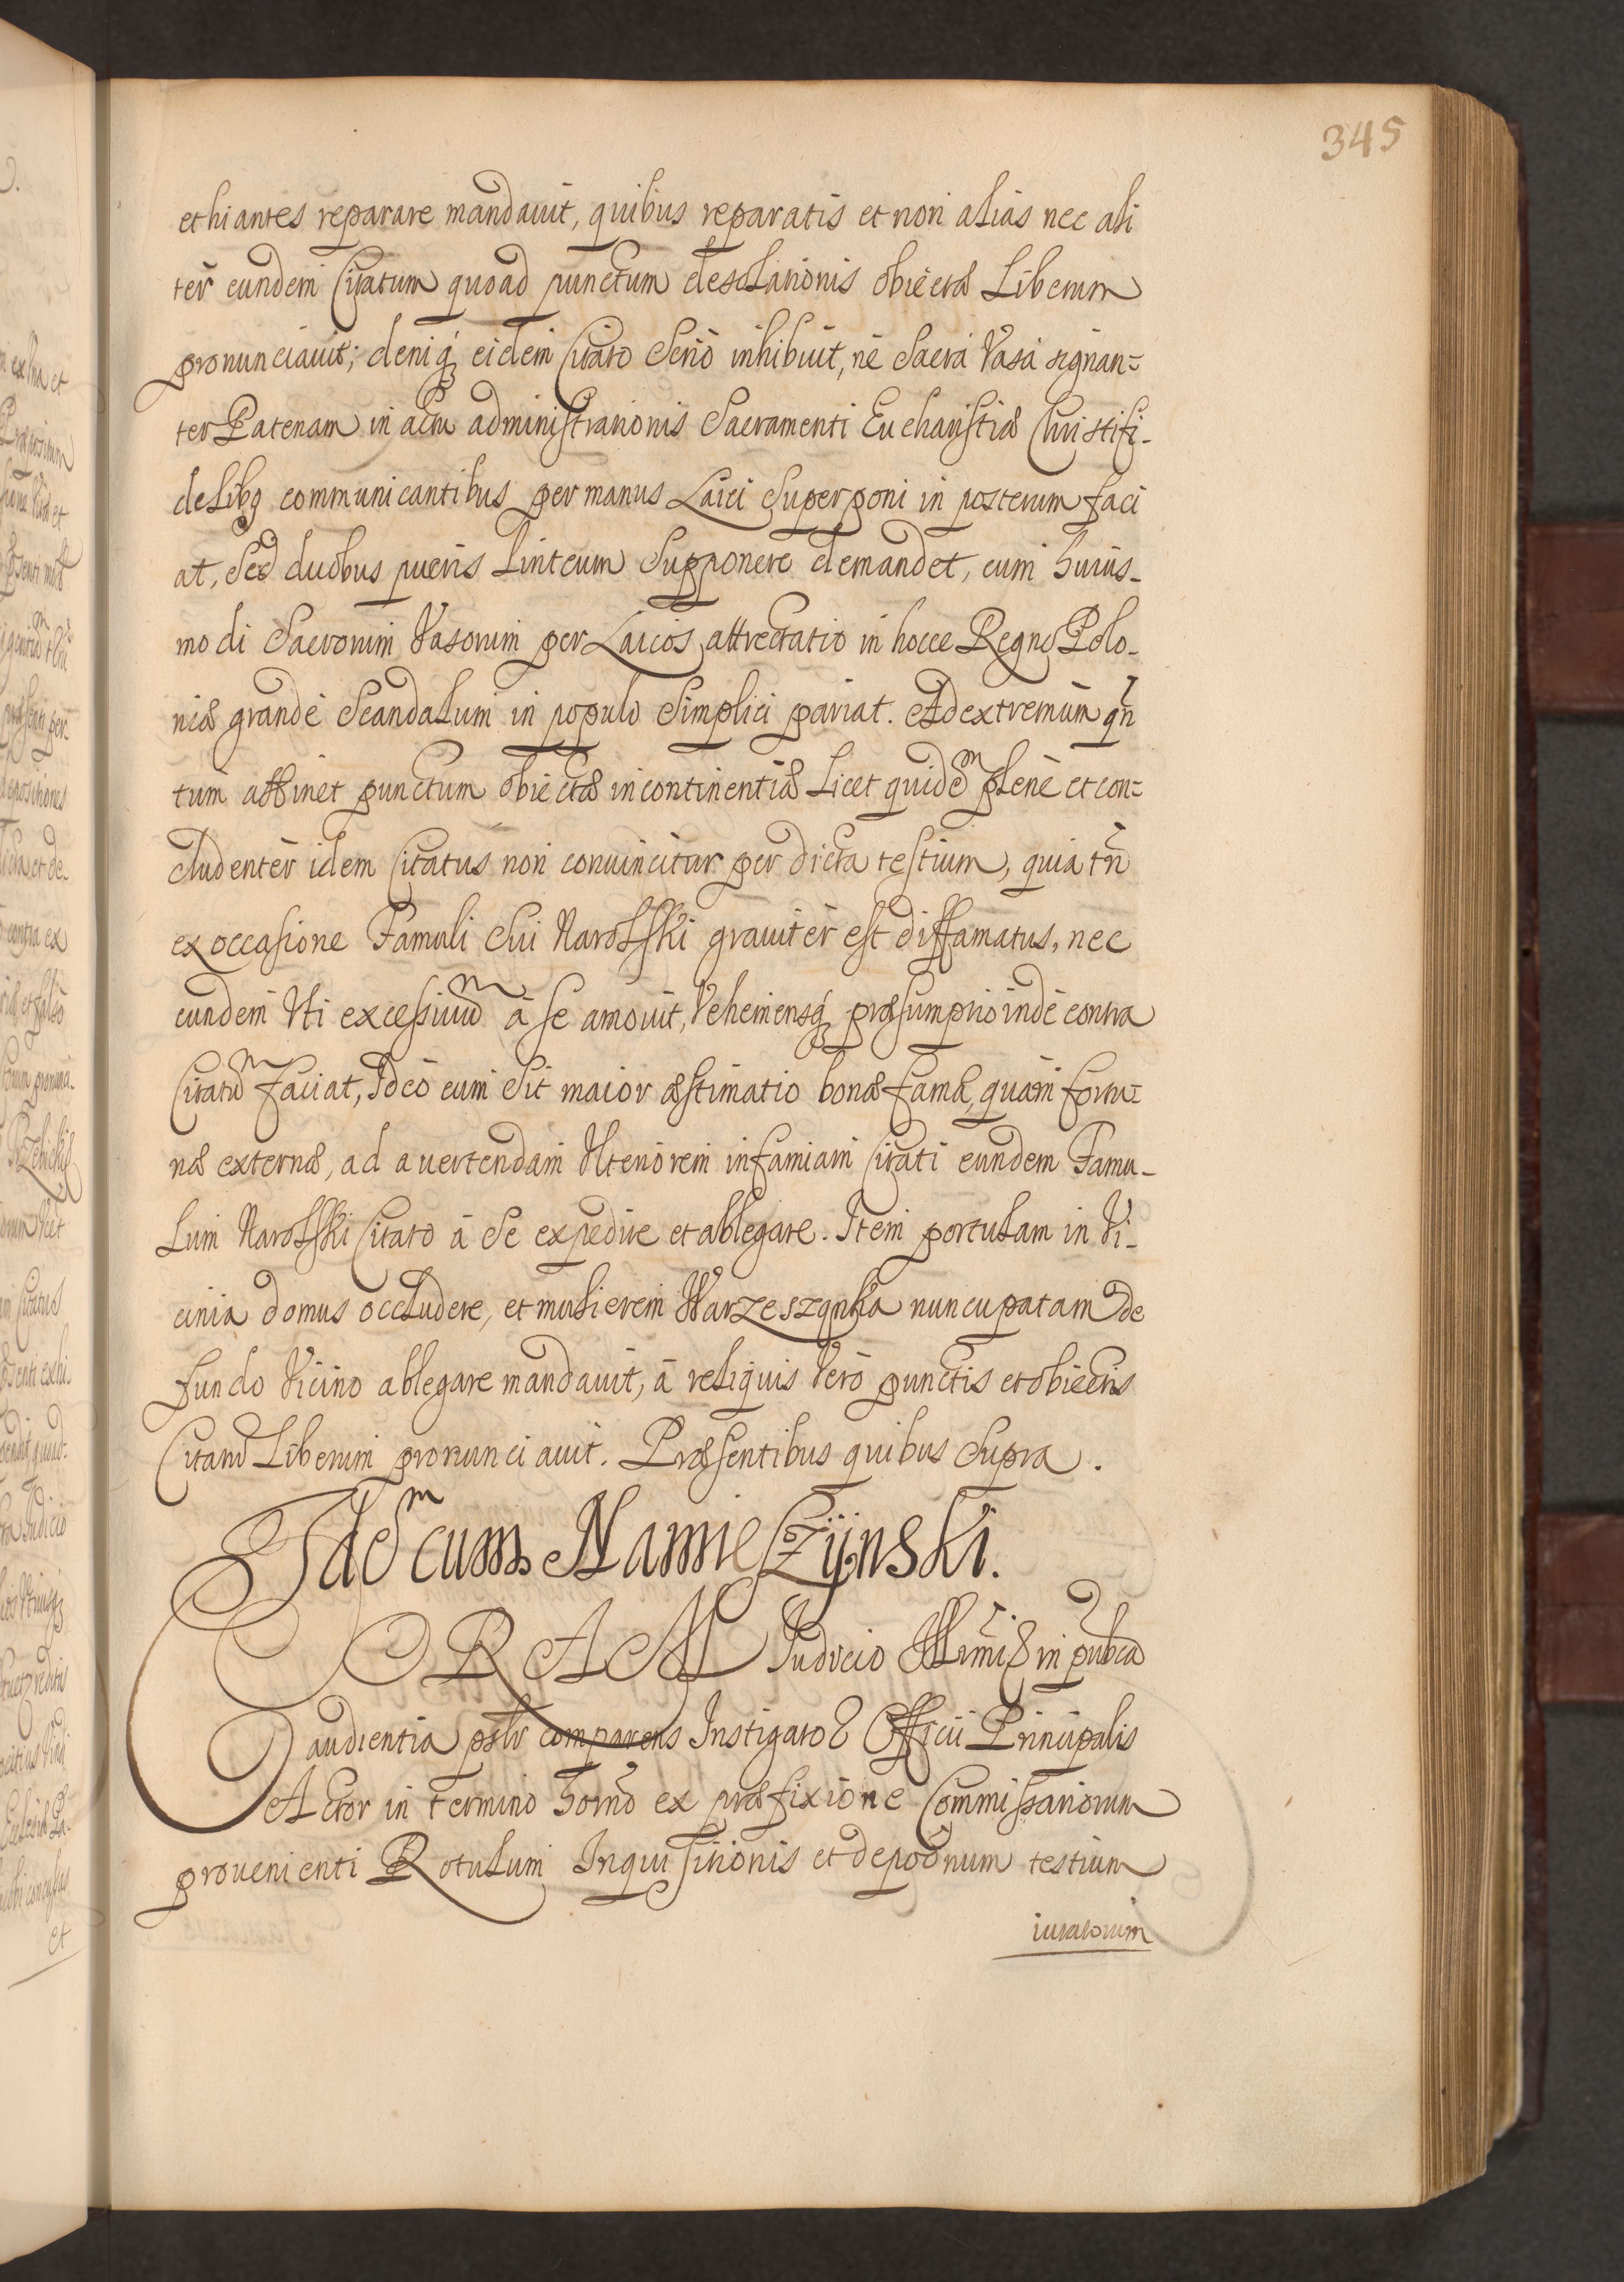 345
et hiantes reparare mandavit, quibus reparatis et non alias nec ali
ter eundem Citatum quoad punctum desolationis obiectæ Liberum
pronunciavit; deniq̨ eidem Citato Serio inhibuit, ne Sacra Vasa signan=
ter Patenam in actu administrationis Sacramenti Eucharistiæ Christifi-
delibq̨ communicantibus per manus Laici Superponi in posterum faci
at, Sed duobus pueris Linteum Supponere demandet, cum huius-
modi Sacrorum Vasorum per Laicos attrectatio in hocce Regno Polo-
niæ grande Scandalum in populo Simplici pariat. Ad extremum qn̄
tum attinet punctum obiectæ incontinentiæ Licet quidem plenè et con=
cludentèr idem Citatus non convincitur per dicta testium, quia tn̄
ex occasione Famuli Sui Narolski graviter est diffamatus, nec
eundem Uti excessivum à se amovit, Vehemensq̨ præsumptio inde contra
Citatum faciat, Ideo cum Sit maior æstimatio bonæ famæ, quàm fortu=
næ externæ, ad avertendam Ulteriorem infamiam Citati eundem Famu-
lum Narolski Citato à Se expedire et ablegare. Item portulam in Vi-
cinia domus occludere, et mulierem Warzeszqnka nuncupatam de
fundo Vicino ablegare mandavit, à reliquis Verò punctis et obiectis
Citatum Liberum pronunciavit. Præsentibus quibus Supra.
Idem cum Namieszÿnski.
CORAM Iudicio Illm̄i in pub̄ca
audientia pslr comparens Instigator Officii Principalis
Actor in termino hor̄no ex præfixione Commissariorum
provenienti Rotulum Inquisitionis et depōonum testium
iuratorum